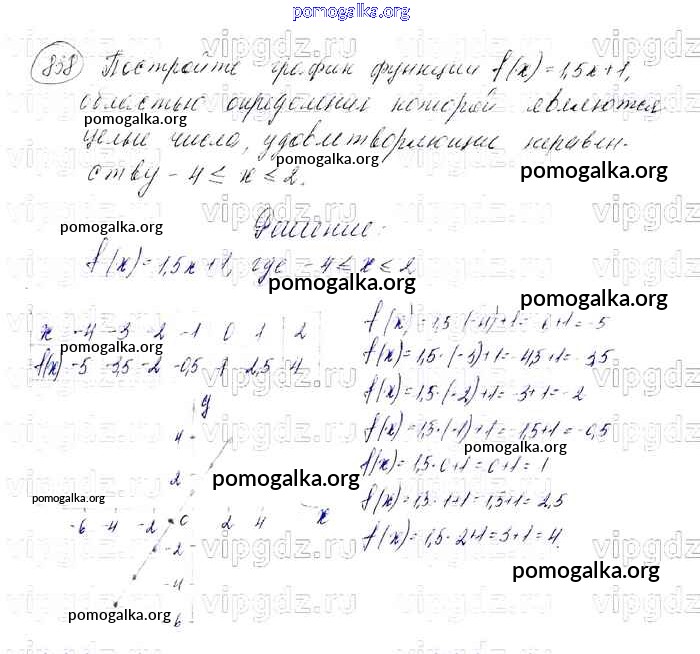 pomogalka.org
838 Постройте график функции f(x)=1,5x+1,
областью определения которой являются
pomogalka.org
целые числа, удовлетворяющие неравен-
pomogalka.org
ству -4 ≤ x ≤ 2.
pomogalka.org
pomogalka.org
Решение:
f(x)=1,5x+1, где -4 ≤ x ≤ 2
pomogalka.org
pomogalka.org
x -4 -3 -2 -1 0 1 2
pomogalka.org
f(x) -5 -3,5 -2 -0,5 1 2,5 4
f(x)=1,5·(-4)+1=-6+1=-5
f(x)=1,5·(-3)+1=-4,5+1=-3,5
f(x)=1,5·(-2)+1=-3+1=-2
f(x)=1,5·(-1)+1=-1,5+1=-0,5
pomogalka.org
f(x)=1,5·0+1=0+1=1
f(x)=1,5·1+1=1,5+1=2,5
f(x)=1,5·2+1=3+1=4.
y
4
2
pomogalka.org
pomogalka.org
-6 -4 -2 0 2 4 x
-2
-4
pomogalka.org
6
pomogalka.org
vipgdz.ru